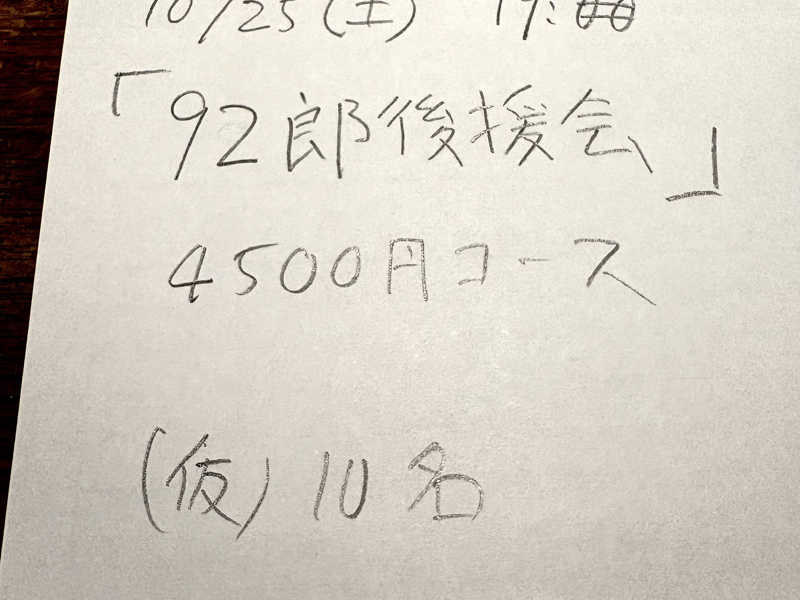 10/25(土) 17:00
「92郎後援会」
4500円コース
(仮) 10名